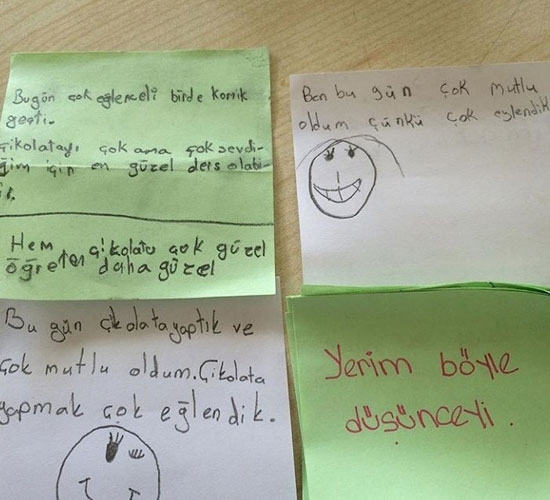 Bugün çok eğlenceli birde komik
geçti.
Çikolatayı çok ama çok sevdi-
ğim için en güzel ders olabi-
lir.
Hem çikolata çok güzel
öğreten daha güzel
Ben bu gün çok mutlu
oldum çünkü çok eylendik
Bu gün çikolata yaptık ve
çok mutlu oldum. Çikolata
yapmak çok eğlendik.
Yerim böyle
düşünceyi.